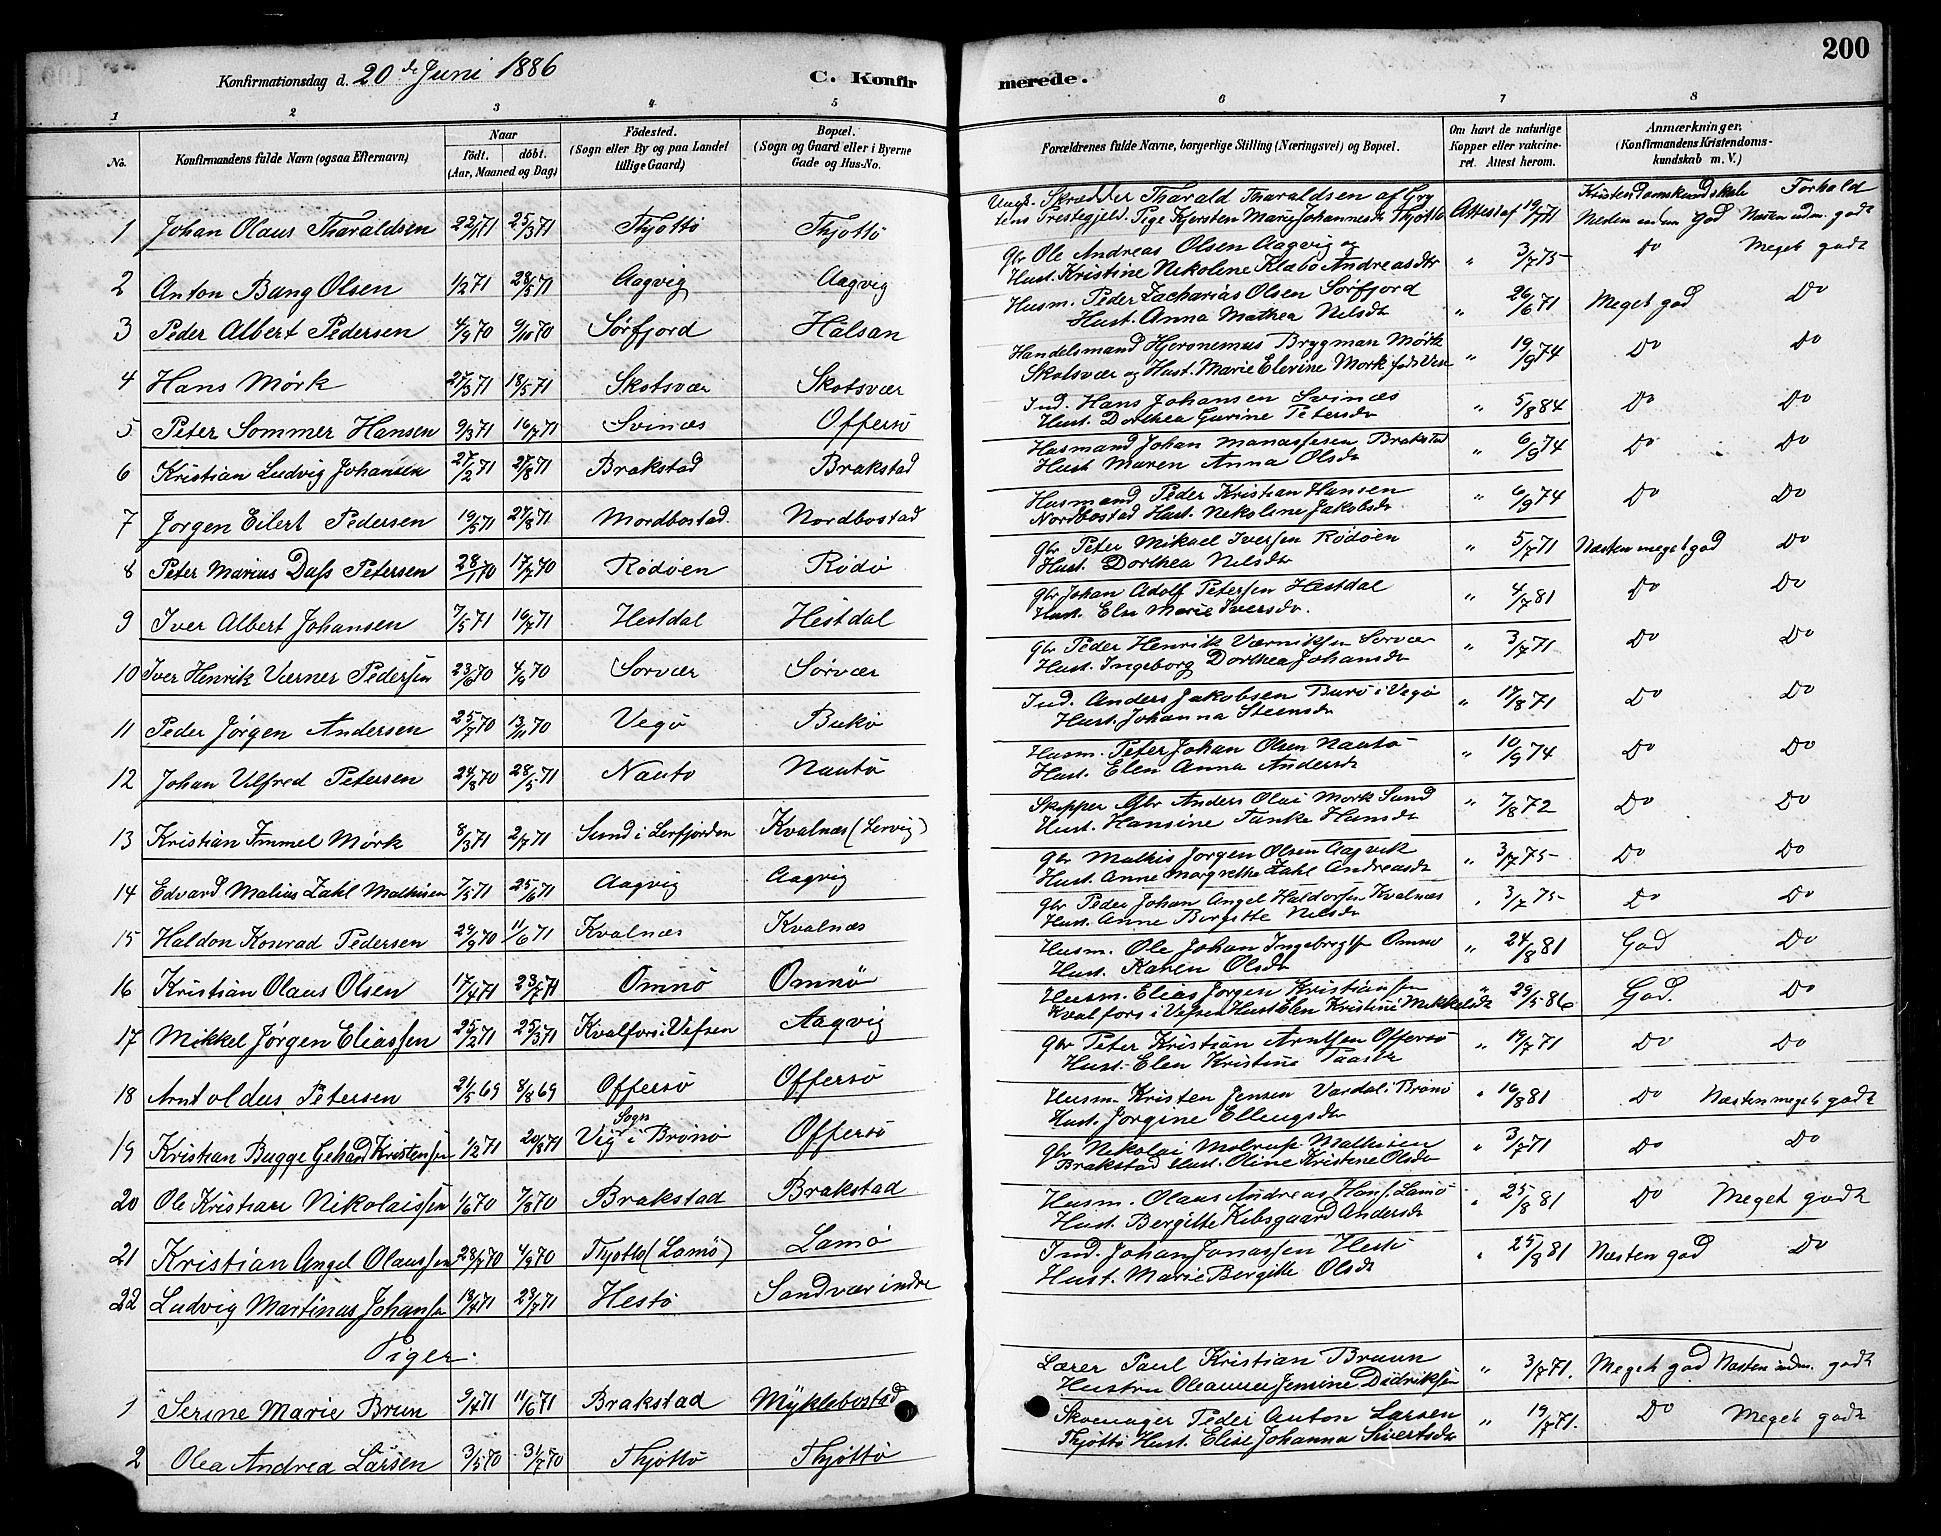 200
Konfirmationsdag d. 20de Juni 1886
C. Konfir
merede.
1 2 3 4 5 6 7 8
No.
Konfirmandens fulde Navn (ogsaa Efternavn)
Naar
födt. döbt.
(Aar, Maaned og Dag)
Födested.
(Sogn eller By og paa Landet
tillige Gaard)
Bopæl.
(Sogn og Gaard eller i Byerne
Gade og Hus-No.
Forældrenes fulde Navne, borgerlige Stilling (Næringsvei) og Bopæl.
Om havt de naturlige
Kopper eller vakcine-
ret. Attest herom.
Anmærkninger.
(Konfirmandens Kristendoms-
kundskab m. V.)
Kristendomskundskab Forhold
1 Johan Olaus Tharaldsen 22/1 71 25/3 71 Thjøttø Thjøttø
Skrædder Tharald Tharaldsen af Gry
tens Prestegjeld. Pige Kjersten Marie Johannesdr Thjøttø Attest af 19/7 71 Nesten inden god Næsten udm. godt
2 Anton Bang Olsen 1/2 71 28/5 71 Aagvig Aagvig
Gbr Ole Andreas Olsen Aagvig og
Hust. Kristine Nikoline Klæbo Andreasdtr " 3/7 75 Do Meget godt
3 Peder Albert Pedersen 4/9 70 9/10 70 Sørfjord Halsan
Husm. Peder Zacharias Olsen Sørfjord
Hust. Anna Mathea Nilsdr " 26/6 71 Meget god Do
4 Hans Mørk 27/3 71 18/5 71 Skotsvær Skotsvær
Handelsmand Hjeronemus Brygman Mørk
Skotsvær og Hust. Marie Elevine Mork " 19/9 74 Do Do
5 Peter Sommer Hansen 9/3 71 16/7 71 Svinæs Offersø
Ind. Hans Johansen Svinæs
Hust. Dorthea Gurine Petersdr " 5/8 84 Do Do
6 Kristian Ludvig Johansen 27/2 71 27/8 71 Brakstad Brakstad
Husmand Johan Manassesen Brakstad
Hust Maren Anna Olsdr " 6/9 74 Do Do
7 Jorgen Eilert Pedersen 19/5 71 27/8 71 Nordbostad. Nordbostad
Husmand Peder Kristian Hansen
Nordbostad Hust. Nekolene Jakobsdr " 6/9 74 Do Do
8 Peter Marius Dass Petersen 28/1 70 17/7 70 Rödöen Rödö
Gbr Peter Mikael Iversen Rödöen
Hust. Dorthea Nilsdr " 5/7 71 Næsten meget god Do
9 Iver Albert Johansen 7/5 71 16/7 71 Hestdal Hestdal
Gbr Johan Adolf Petersen Hestdal
Hust. Elen Marie Iversdr. " 4/7 81 Do Do
10 Iver Henrik Værner Pedersen 23/6 70 4/9 70 Sorvær Sørvær
Gbr Peder Henrik Værniksen Sorvær
Hust. Ingeborg Dorthea Johansdr " 3/7 71 Do Do
11 Peder Jørgen Andersen 25/7 70 13/11 70 Vegö Bukö
Ind. Anders Jakobsen Burö i Vegö
Hust. Johanna Steensdr " 17/8 71 Do Do
12 Johan Ulfred Petersen 24/8 70 28/5 71 Nautö Nautö
Husm. Peter Johan Olsen Nautö
Hust. Elen Anna Andersdr " 10/9 74 Do Do
13 Kristian Immel Mörk 8/3 71 2/7 71 Sund i Lerfjorden Kvalnæs (Lervig)
Skipper Gbr Anders Olai Mork Sund
Hust. Hansine Tanke Hansdr " 7/8 72 Do Do
14 Edvard Malius Zahl Mathisen 7/5 71 25/6 71 Aagvig Aagvig
Gbr Mathis Jorgen Olsen Aagvik
Hust. Anne Margrethe Zahl Andreasdr " 3/7 75 Do Do
15 Haldon Konrad Pedersen 29/9 70 11/6 71 Kvalnæs Kvalnæs
Gbr Peder Johan Angel Haldorsen Kvalnæs
Hust. Anne Bergitte Nilsdr " 3/7 75 Do Do
16 Kristian Olaus Olsen 17/4 71 23/7 71 Omnö Omnö
Husm. Ole Johan Ingebregtsen Omnö
Hust. Karen Olsdr " 24/8 81 God Do
17 Mikkel Jørgen Eliassen 25/2 71 25/3 71 Kvalfors i Vefsen Aagvig
Husm. Elias Jorgen Kristiansen
Kvalfors i Vefsen Hust Elen Kristine Mikkelsdr " 29/5 86 God. Do
18 Arnt oldus Petersen 21/5 69 8/8 69 Offersö Offersö
Gbr Peter Kristian Arntsen Offersö
Hust. Elen Kristine " 19/7 71 Do Do
19 Kristian Bugge Gehard Kristensen 1/2 71 20/8 71 Vig Sogn i Brönö Offersö
Husm. Kristen Jensen Vasdal i Brönö
Hust. Jorgine Ellingsdr " 16/8 81 Do Næsten meget godt
20 Ole Kristian Nikolaissen 1/6 70 7/8 70 Brakstad Brakstad
Gbr Nikolai Mathisen
Brakstad Hust. Oline Kristine Olsdr " 3/7 71 Do Do
21 Kristian Angel Olaussen 28/7 70 4/9 70 Thjøttø (Lamö) Lamö
Husm. Olaus Andreas Hans. Lamö
Hust. Bergitte Kibsgaard Andersdr " 25/8 81 Do Meget godt
22 Ludvig Martinus Johansen 13/4 71 23/7 71 Hestö Sandvær indre
Ind. Johan Jonassen Hestö
Hust. Marie Bergitte Olsdr " 25/8 81 Næsten god Do
Piger.
1 Serine Marie Brun 9/4 71 11/6 71 Brakstad Mýklebostad
Lærer Paul Kristian Bruun
Hustru Oleanna Jensine Didriksen " 3/7 71. Meget god Næsten udm. godt
2 Olea Andrea Larsen 3/5 70 31/7 70 Thjöttö Thjöttö
Skovenager Peder Anton Larsen
Thjöttö Hust. Elise Johanna Sivertsdr " 19/7 71. Do Meget godt